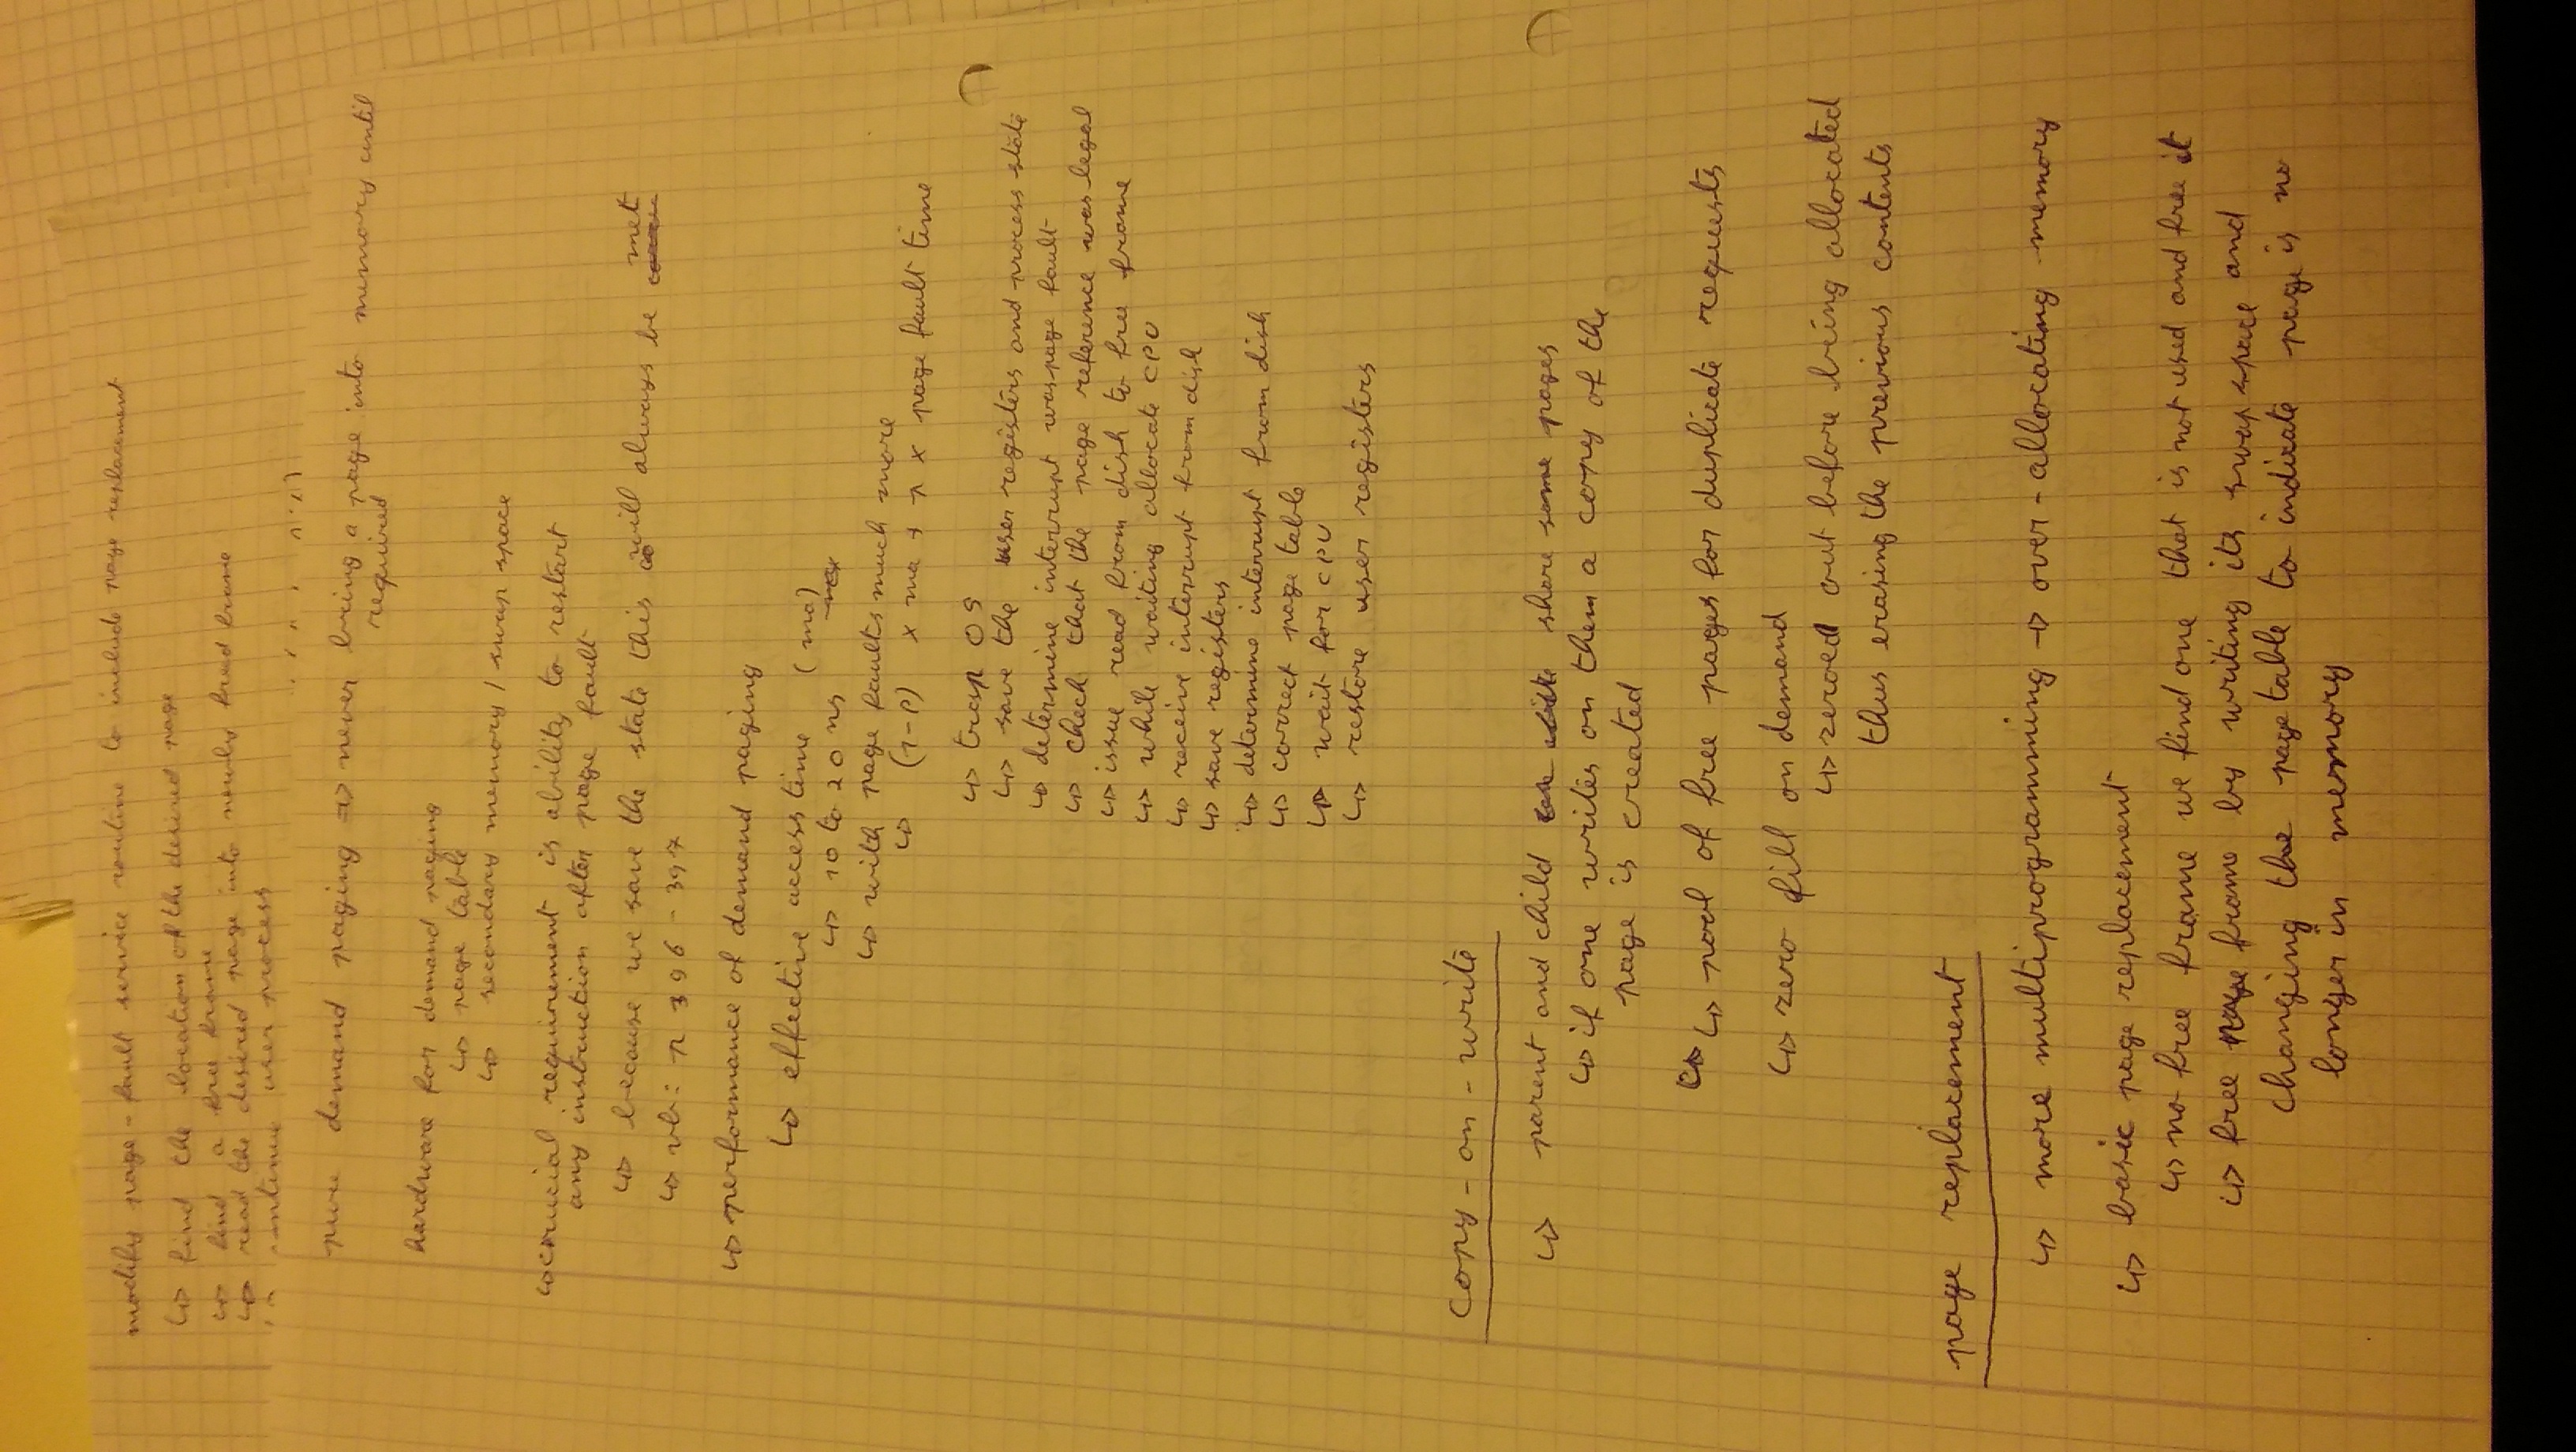 modify page-fault service routine to include page replacement
↳ find the location of the desired page
↳ find a free frame
↳ read the desired page into newly freed frame
continue user process
pure demand paging => never bring a page into memory until
required
hardware for demand paging
↳ page table
↳ secondary memory / swap space
↳ crucial requirement is ability to restart
any instruction after page fault
↳ because we save the state this will always be met
↳ vb: p 396 - 397
↳ performance of demand paging
↳ effective access time (ma)
↳ 10 to 20 ns
↳ with page faults much more
↳ (1-p) x ma + p x page fault time
↳ trap OS
↳ save the user registers and process state
↳ determine interrupt was page fault
↳ check that the page reference was legal
↳ issue read from disk to free frame
↳ while waiting allocate CPU
↳ receive interrupt from disk
↳ save registers
↳ determine interrupt from disk
↳ correct page table
↳ wait for CPU
↳ restore user registers
copy-on-write
↳ parent and child share same pages
↳ if one writes on them a copy of the
page is created
↳ pool of free pages for duplicate requests
↳ zero fill on demand
↳ zeroed out before being allocated
thus erasing the previous contents
page replacement
↳ more multiprogramming -> over-allocating memory
↳ basic page replacement
↳ no free frame we find one that is not used and free it
↳ free frame by writing its swap space and
changing the page table to indicate page is no
longer in memory